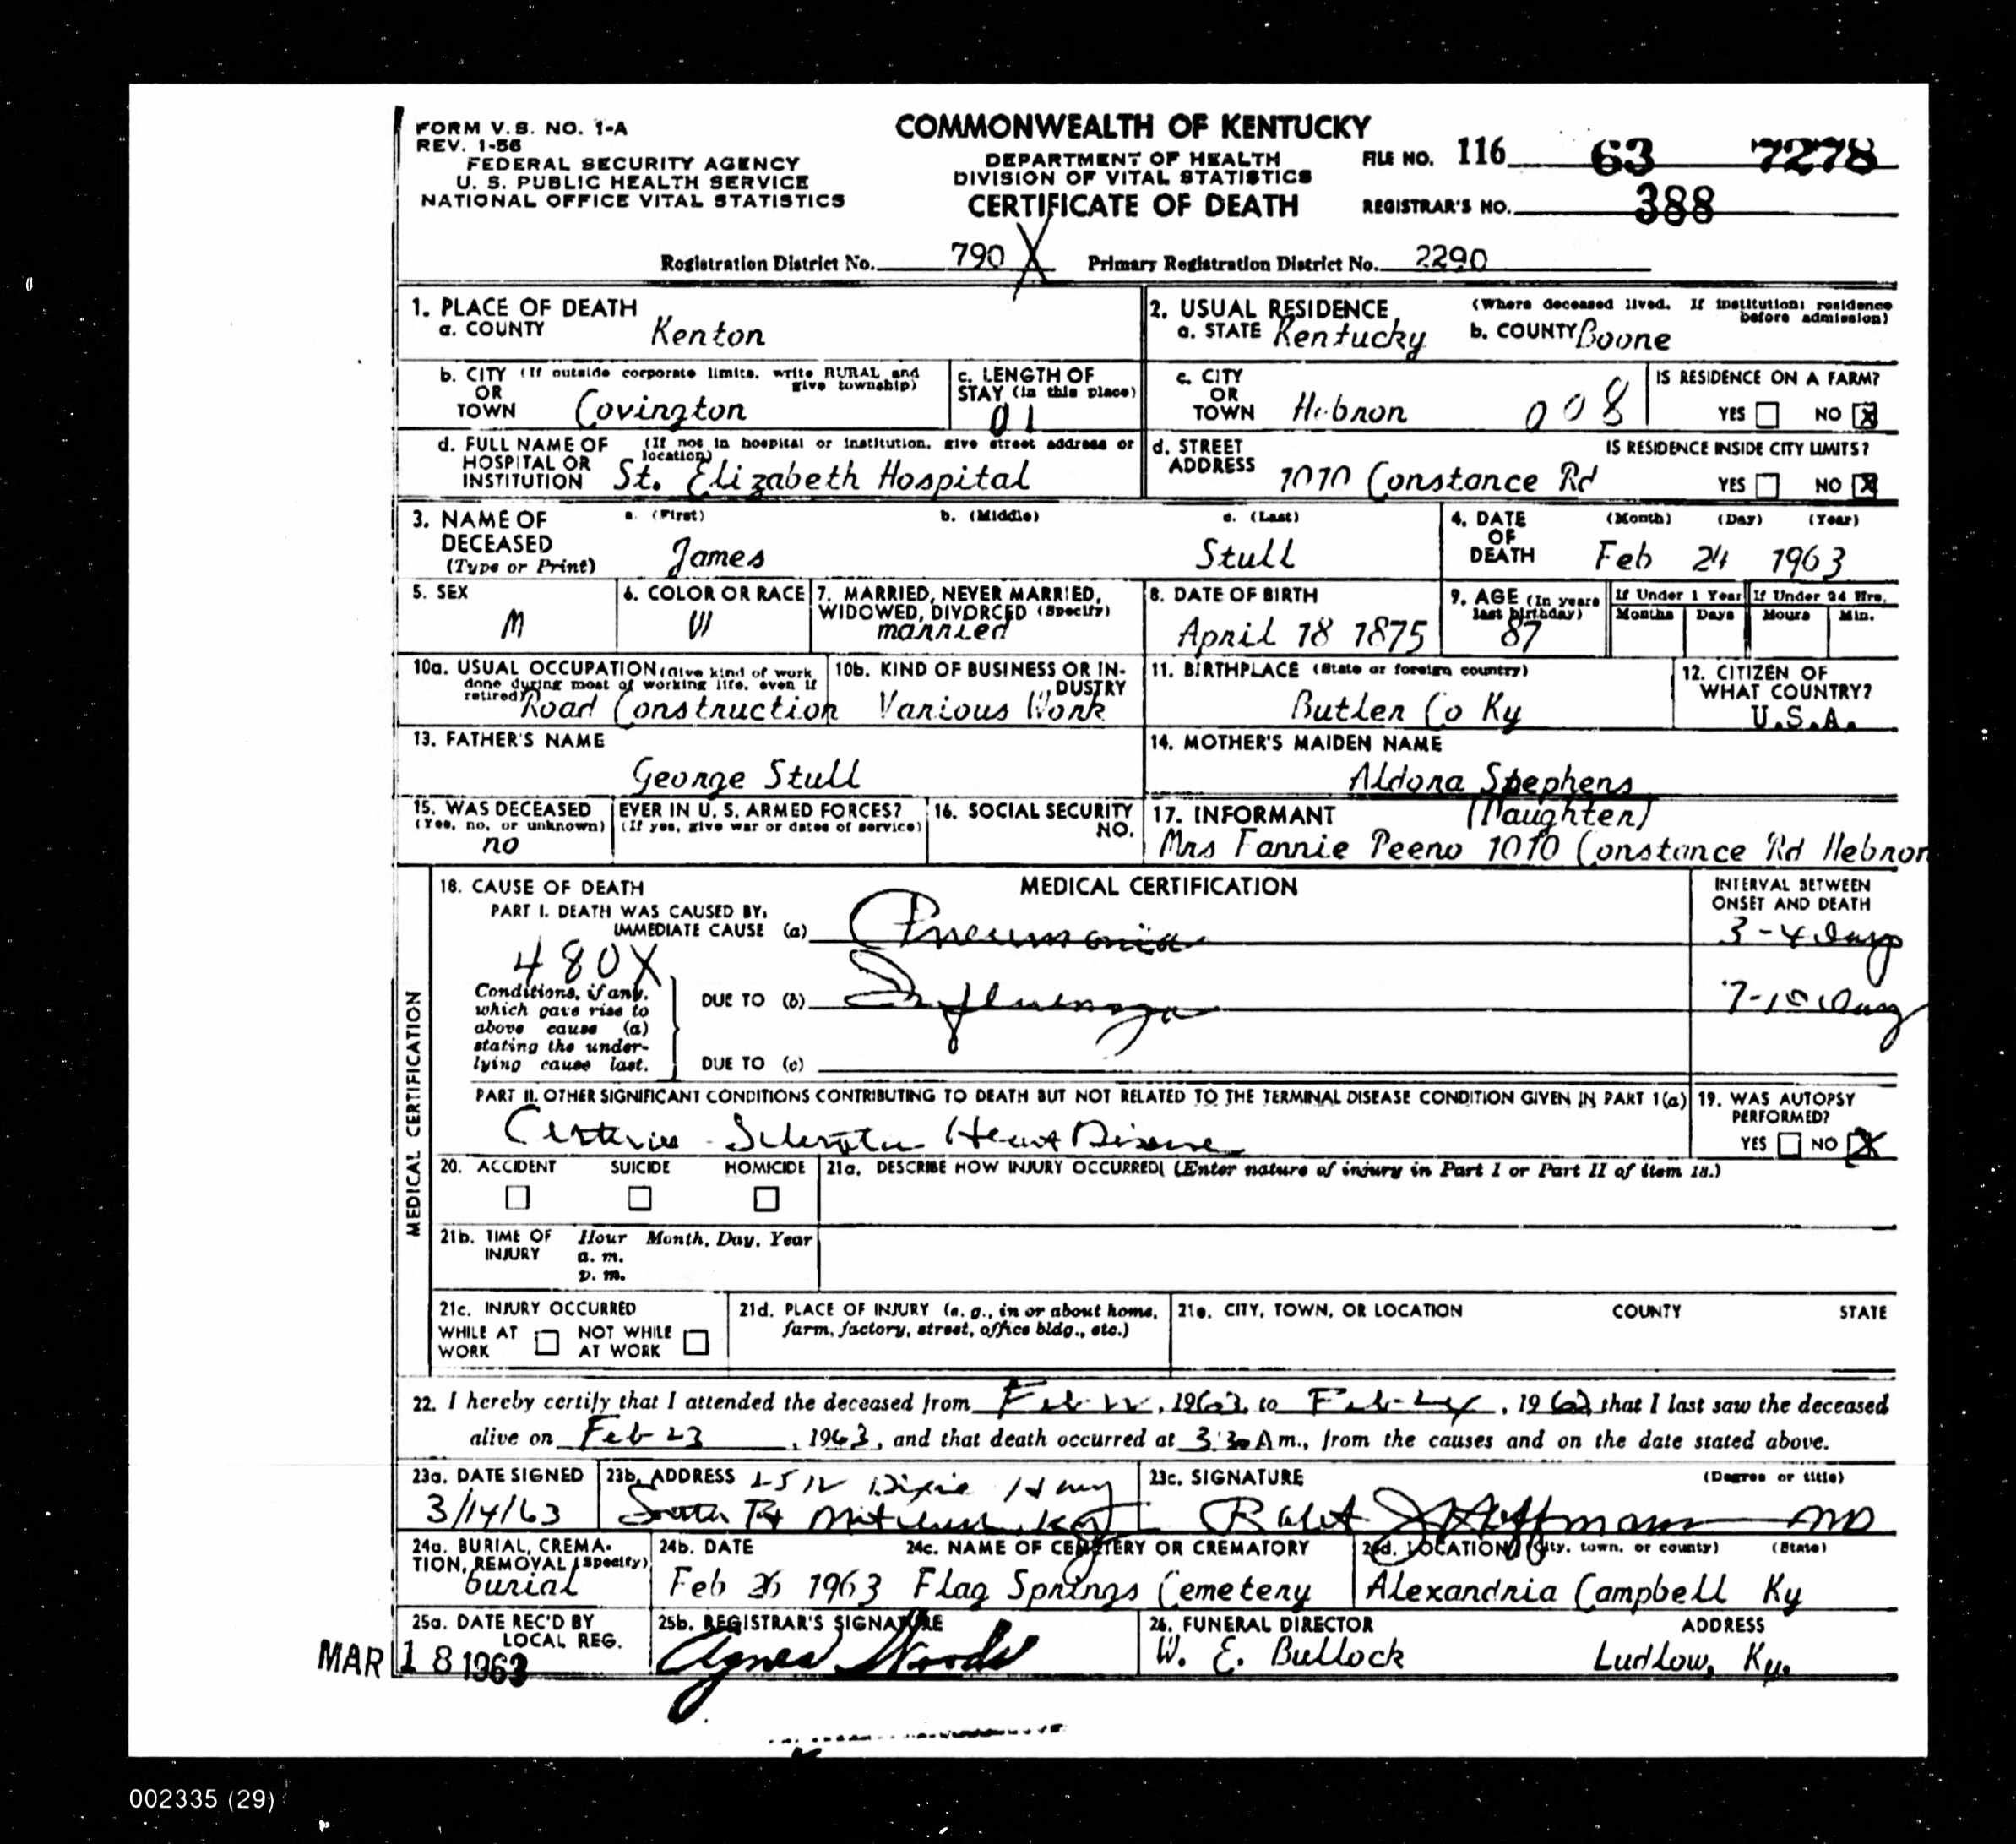 FORM V. S. NO. 1-A
REV. 1-56
FEDERAL SECURITY AGENCY
U. S. PUBLIC HEALTH SERVICE
NATIONAL OFFICE VITAL STATISTICS
COMMONWEALTH OF KENTUCKY
DEPARTMENT OF HEALTH
DIVISION OF VITAL STATISTICS
CERTIFICATE OF DEATH
FILE NO. 116 63 7278
REGISTRAR'S NO. 388
Registration District No. 790 X Primary Registration District No. 2290
1. PLACE OF DEATH
a. COUNTY Kenton
2. USUAL RESIDENCE (Where deceased lived. If institution: residence before admission)
a. STATE Kentucky b. COUNTY Boone
b. CITY (If outside corporate limits, write RURAL and give township)
OR
TOWN Covington
c. LENGTH OF
STAY (in this place)
01
c. CITY
OR
TOWN Hebron 008
IS RESIDENCE ON A FARM?
YES NO X
d. FULL NAME OF (If not in hospital or institution, give street address or location)
HOSPITAL OR
INSTITUTION St. Elizabeth Hospital
d. STREET
ADDRESS 1010 Constance Rd
IS RESIDENCE INSIDE CITY LIMITS?
YES NO X
3. NAME OF DECEASED
(Type or Print)
a. (First) b. (Middle) c. (Last)
James Stull
4. DATE OF DEATH (Month) (Day) (Year)
Feb 24 1963
5. SEX
M
6. COLOR OR RACE
W
7. MARRIED, NEVER MARRIED,
WIDOWED, DIVORCED (Specify)
married
8. DATE OF BIRTH
April 18 1875
9. AGE (In years last birthday)
87
If Under 1 Year If Under 24 Hrs.
Months Days Hours Min.
10a. USUAL OCCUPATION (Give kind of work
done during most of working life, even if
retired) Road Construction
10b. KIND OF BUSINESS OR INDUSTRY
Various Work
11. BIRTHPLACE (State or foreign country)
Butler Co Ky
12. CITIZEN OF
WHAT COUNTRY?
U.S.A.
13. FATHER'S NAME
George Stull
14. MOTHER'S MAIDEN NAME
Aldora Stephens
15. WAS DECEASED EVER IN U. S. ARMED FORCES?
(Yes, no, or unknown) (If yes, give war or dates of service)
no
16. SOCIAL SECURITY
NO.
17. INFORMANT (Daughter)
Mrs Fannie Peeno 1010 Constance Rd Hebron
MEDICAL CERTIFICATION
18. CAUSE OF DEATH MEDICAL CERTIFICATION
INTERVAL BETWEEN
ONSET AND DEATH
PART I. DEATH WAS CAUSED BY:
IMMEDIATE CAUSE (a) Pneumonia 3-4 days
480X
Conditions, if any,
which gave rise to
above cause (a)
stating the under-
lying cause last.
DUE TO (b) Influenza 7-10 days
DUE TO (c)
PART II. OTHER SIGNIFICANT CONDITIONS CONTRIBUTING TO DEATH BUT NOT RELATED TO THE TERMINAL DISEASE CONDITION GIVEN IN PART 1(a)
Heart Disease
19. WAS AUTOPSY
PERFORMED?
YES NO X
20. ACCIDENT SUICIDE HOMICIDE
21a. DESCRIBE HOW INJURY OCCURRED (Enter nature of injury in Part I or Part II of item 18.)
21b. TIME OF INJURY Hour Month, Day, Year
a. m.
p. m.
21c. INJURY OCCURRED
WHILE AT WORK NOT WHILE AT WORK
21d. PLACE OF INJURY (e. g., in or about home,
farm, factory, street, office bldg., etc.)
21e. CITY, TOWN, OR LOCATION COUNTY STATE
22. I hereby certify that I attended the deceased from Feb , 1963, to Feb 24, 1963 that I last saw the deceased
alive on Feb 23, 1963, and that death occurred at 3:30 A m., from the causes and on the date stated above.
23a. DATE SIGNED
3/14/63
23b. ADDRESS 2512 Dixie Hwy
South Ft Mitchell Ky
23c. SIGNATURE (Degree or title)
Robert J Hoffmann MD
24a. BURIAL, CREMA-
TION, REMOVAL (Specify)
burial
24b. DATE
Feb 26 1963
24c. NAME OF CEMETERY OR CREMATORY
Flag Springs Cemetery
24d. LOCATION (City, town, or county) (State)
Alexandria Campbell Ky
25a. DATE REC'D BY
LOCAL REG.
MAR 18 1963
25b. REGISTRAR'S SIGNATURE
Agnes Woods
26. FUNERAL DIRECTOR ADDRESS
W. E. Bullock Ludlow, Ky.
002335 (29)